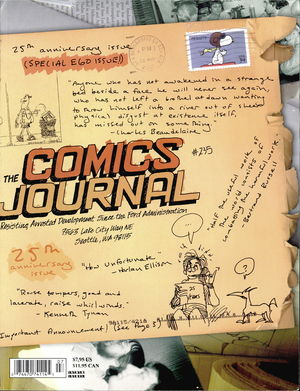 25th anniversary issue
(SPECIAL EGO ISSUE!)
"Anyone who has not awakened in a strange
bed beside a face he will never see again,
who has not left a brothel at dawn wanting
to throw himself into a river out of sheer
physical disgust at existence itself,
has missed out on something."
—Charles Beaudelaire
THE COMICS JOURNAL
#235
Resisting Arrested Development Since the Ford Administration
7563 Lake City Way NE
Seattle, WA 98115
"Half the useful work in
the world consists of
combatting the harmful work."
—Bertrand Russell
25th
anniversary
issue
"How unfortunate."
—Harlan Ellison
25
YEARS
"Raise tempers, goad and
lacerate, raise whirlwinds."
- Kenneth Tynan
Important Announcement! (See Page 3)
$7.95 US
$11.95 CAN